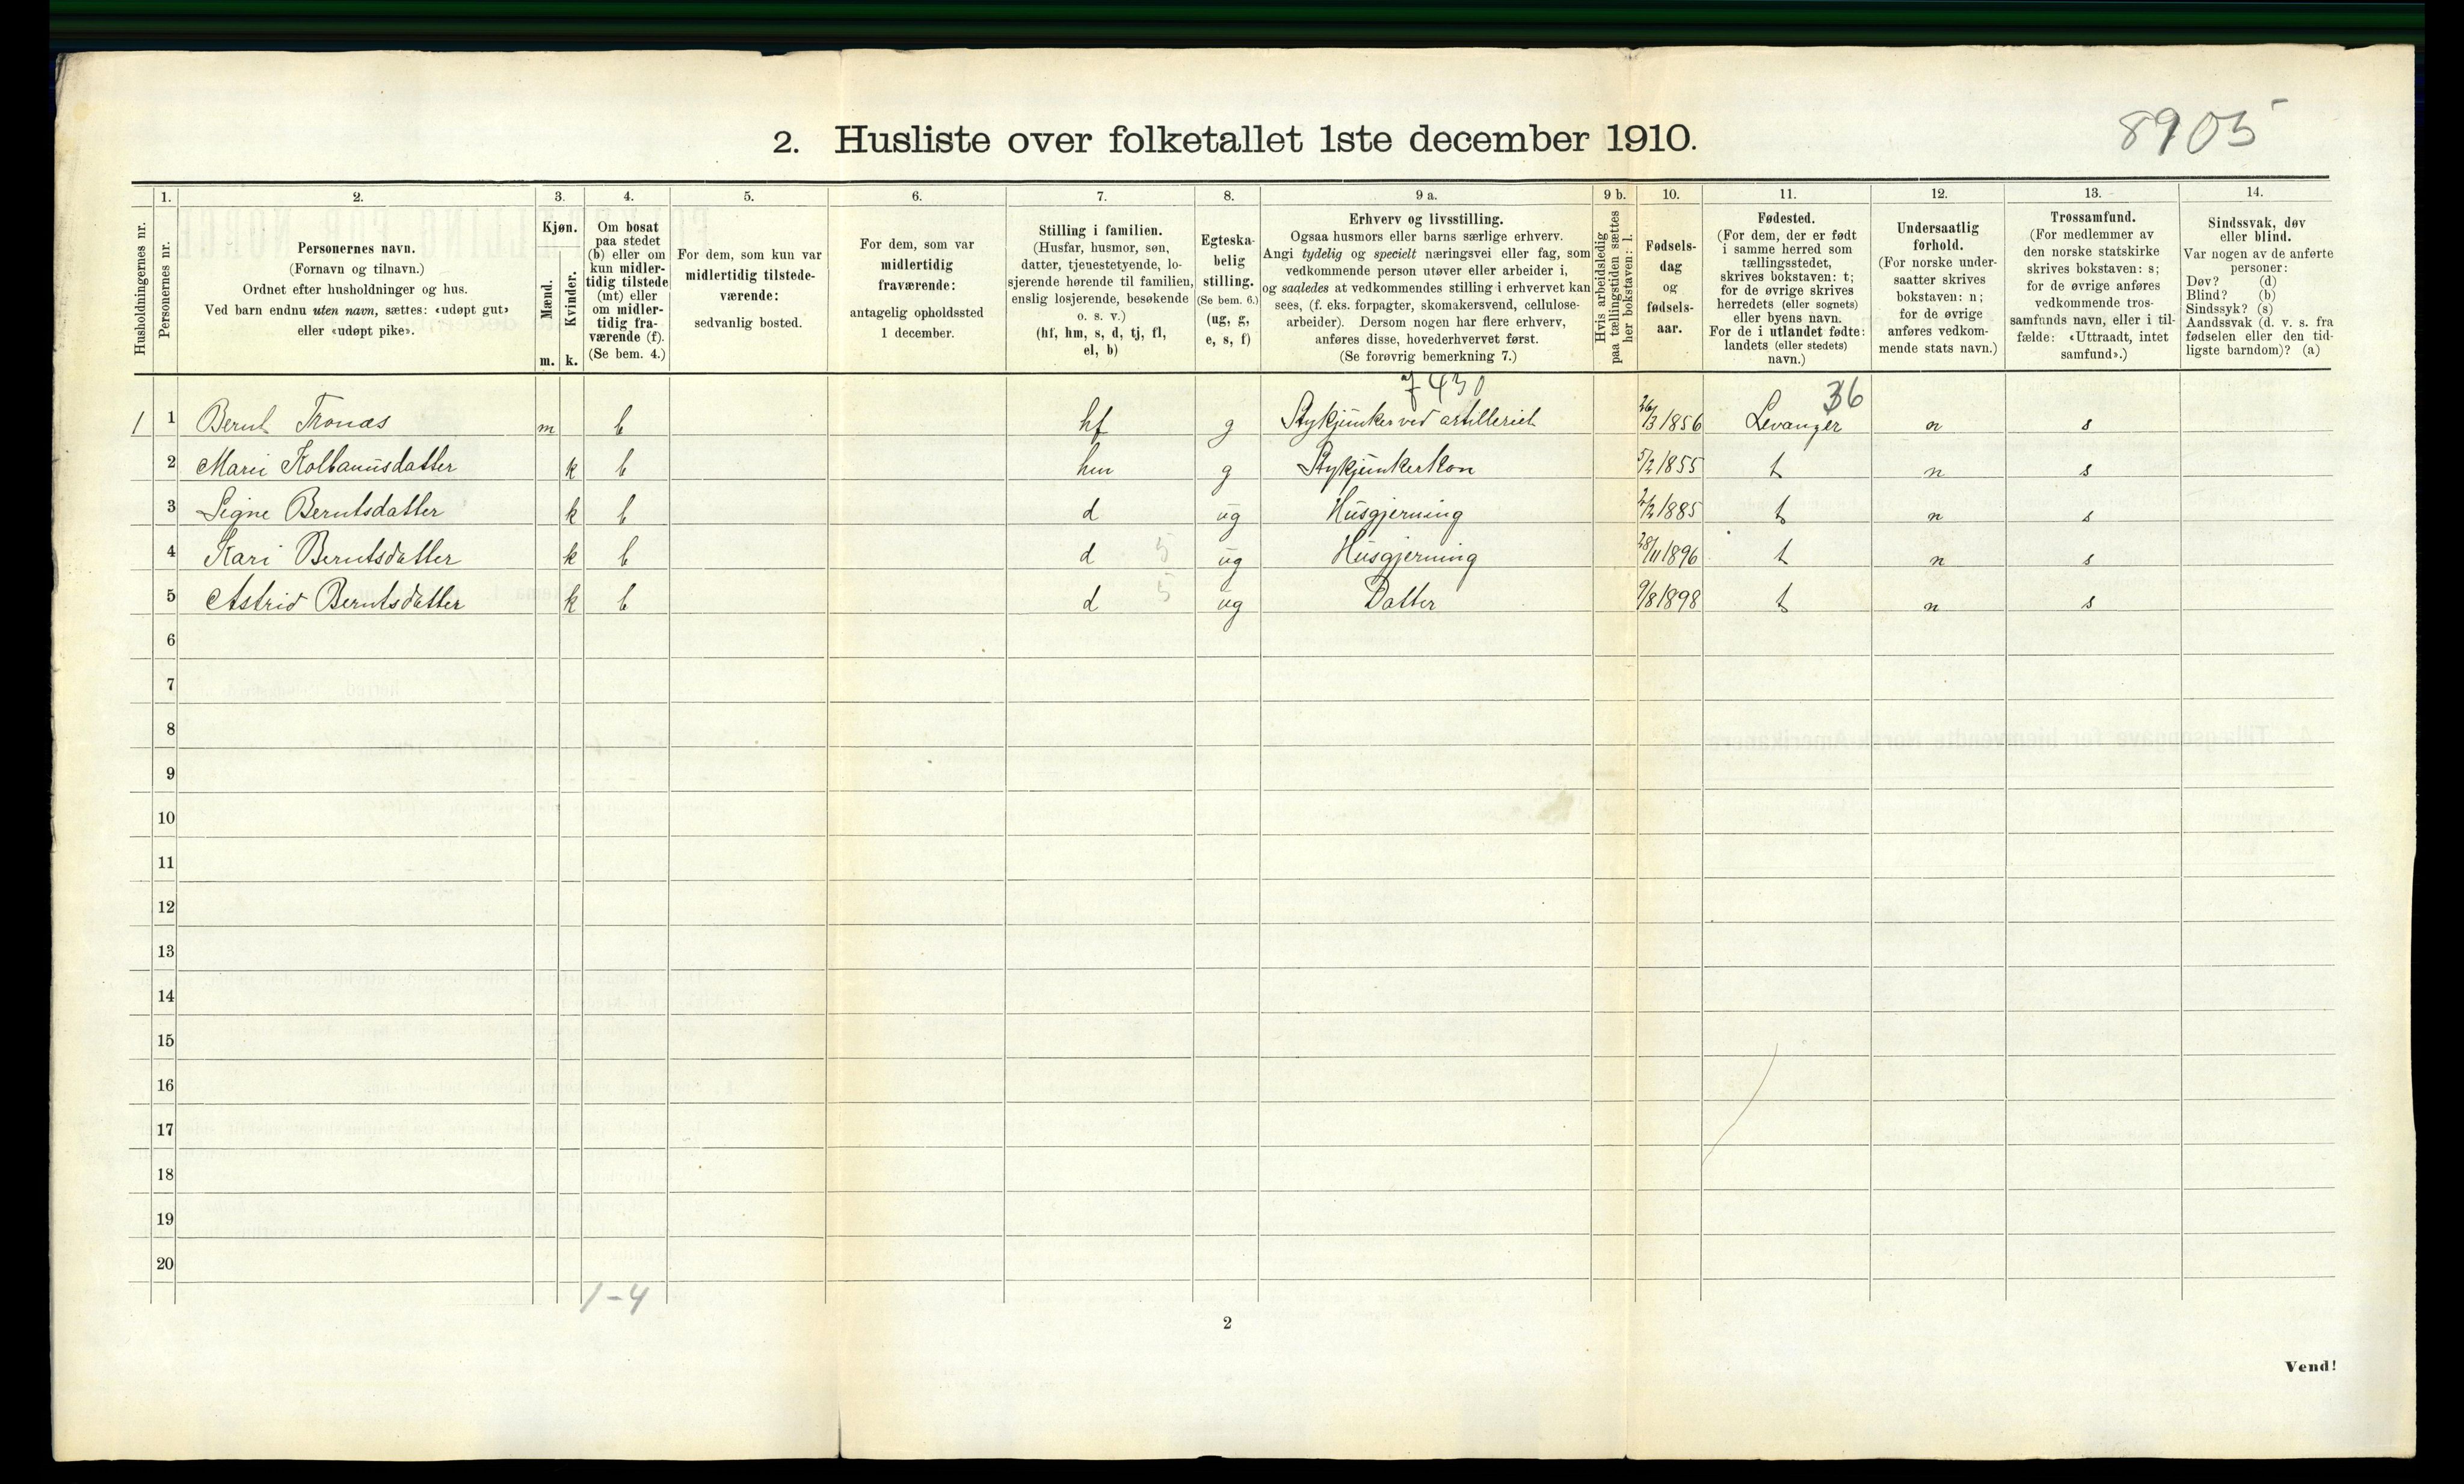 8905
2. Husliste over folketallet 1ste december 1910.
Husholdningernes nr.
1.
Personernes nr.
2.
Personernes navn.
(Fornavn og tilnavn.)
Ordnet efter husholdninger og hus.
Ved barn endnu uten navn, sættes: «udøpt gut»
eller «udøpt pike».
3.
Kjøn.
Mænd.
Kvinder.
m. k.
4.
Om bosat
paa stedet
(b) eller om
kun midler-
tidig tilstede
(mt) eller
om midler-
tidig fra-
værende (f).
(Se bem. 4.)
5.
For dem, som kun var
midlertidig tilstede-
værende:
sedvanlig bosted.
6.
For dem, som var
midlertidig
fraværende:
antagelig opholdssted
1 december.
7.
Stilling i familien.
(Husfar, husmor, søn,
datter, tjenestetyende, lo-
sjerende hørende til familien,
enslig losjerende, besøkende
o. s. v.)
(hf, hm, s, d, tj, fl,
el, b)
8.
Egteska-
belig
stilling.
(Se bem. 6.)
(ug, g,
e, s, f)
9 a.
Erhverv og livsstilling.
Ogsaa husmors eller barns særlige erhverv.
Angi tydelig og specielt næringsvei eller fag, som
vedkommende person utøver eller arbeider i,
og saaledes at vedkommendes stilling i erhvervet kan
sees, (f. eks. forpagter, skomakersvend, cellulose-
arbeider). Dersom nogen har flere erhverv,
anføres disse, hovederhvervet først.
(Se forøvrig bemerkning 7.)
9 b.
Hvis arbeidsledig
paa tællingstiden sættes
her bokstaven: l.
10.
Fødsels-
dag
og
fødsels-
aar.
11.
Fødested.
(For dem, der er født
i samme herred som
tællingsstedet,
skrives bokstaven: t;
for de øvrige skrives
herredets (eller sognets)
eller byens navn.
For de i utlandet fødte:
landets (eller stedets)
navn.)
12.
Undersaatlig
forhold.
(For norske under-
saatter skrives
bokstaven: n;
for de øvrige
anføres vedkom-
mende stats navn.)
13.
Trossamfund.
(For medlemmer av
den norske statskirke
skrives bokstaven: s;
for de øvrige anføres
vedkommende tros-
samfunds navn, eller i til-
fælde: «Uttraadt, intet
samfund».)
14.
Sindssvak, døv
eller blind.
Var nogen av de anførte
personer:
Døv? (d)
Blind? (b)
Sindssyk? (s)
Aandssvak (d. v. s. fra
fødselen eller den tid-
ligste barndom)? (a)
7430 36
1 1 Bernt Tronæs m b hf g Stykjunker ved artilleriet 26/3 1856 Levanger n s
2 Marie Kolbanusdatter k b hm g Stykjunkerkon 5/2 1855 t n s
3 Signe Berntsdatter k b d ug Husgjerning 1885 t n s
4 Kari Berntsdatter k b d 5 ug Husgjerning 28/11 1896 t n s
5 Astrid Berntsdatter k b d 5 ug Datter 9/8 1898 t n s
6
7
8
9
10
11
12
13
14
15
16
17
18
19
20
1-4
2
Vend!